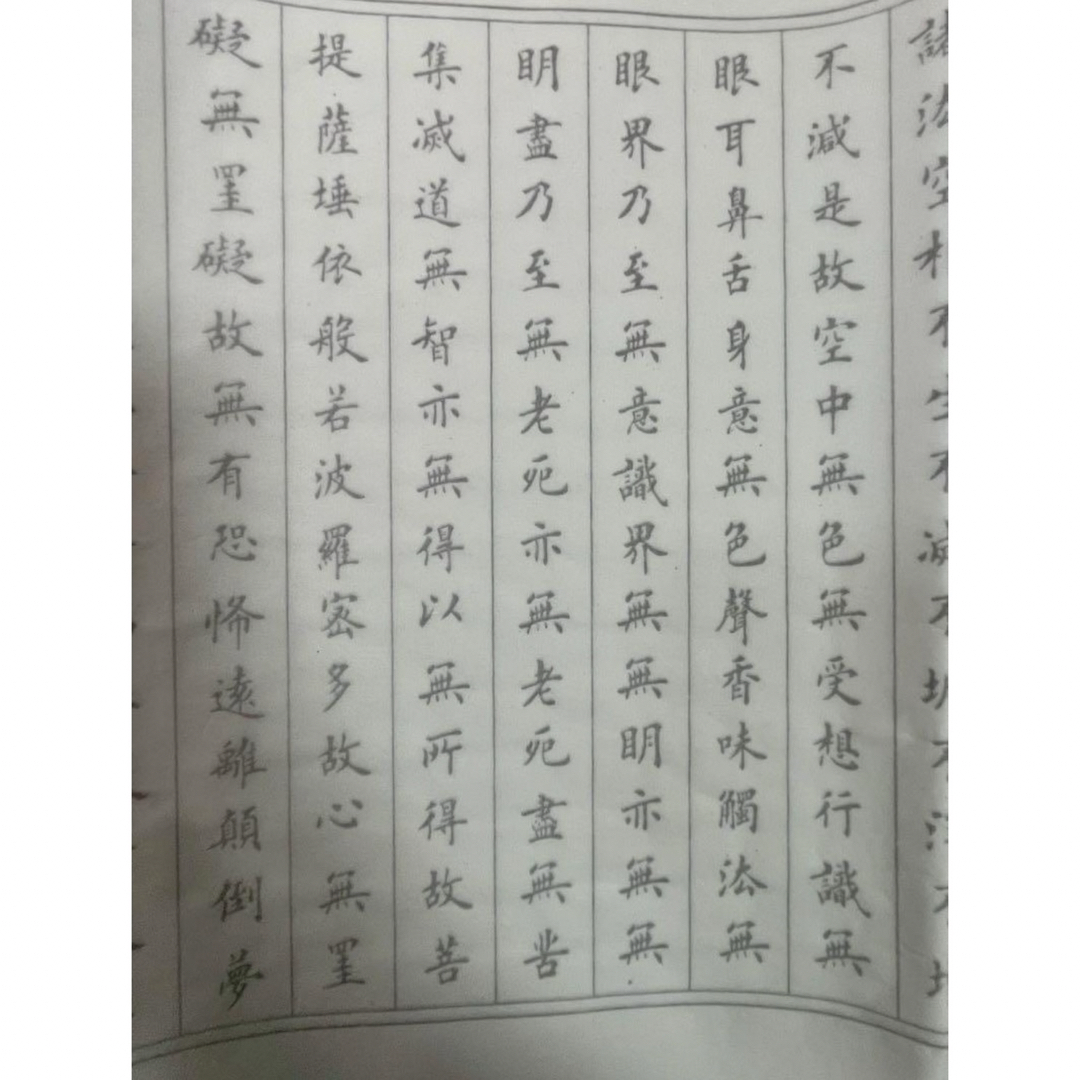 諸法空相不生不滅不垢不淨不增
不減是故空中無色無受想行識無
眼耳鼻舌身意無色聲香味觸法無
眼界乃至無意識界無無明亦無無
明盡乃至無老死亦無老死盡無苦
集滅道無智亦無得以無所得故菩
提薩埵依般若波羅密多故心無罣
礙無罣礙故無有恐怖遠離顛倒夢